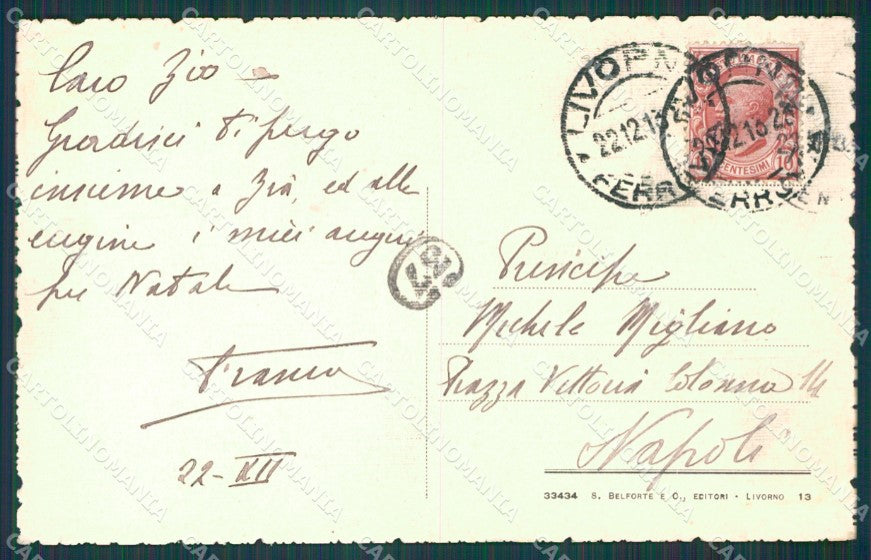 Caro Zio –
Gradisci ti prego
insieme a Zia, ed alle
cugine i miei auguri
per Natale
Franco
22-XII
LIVORNO
22.12.13
FERROVIA
CENTESIMI
10
Principe
Michele Migliano
Piazza Vittoria Colonna 14
Napoli
33434 S. BELFORTE E C., EDITORI • LIVORNO 13
CARTOLINOMANIA